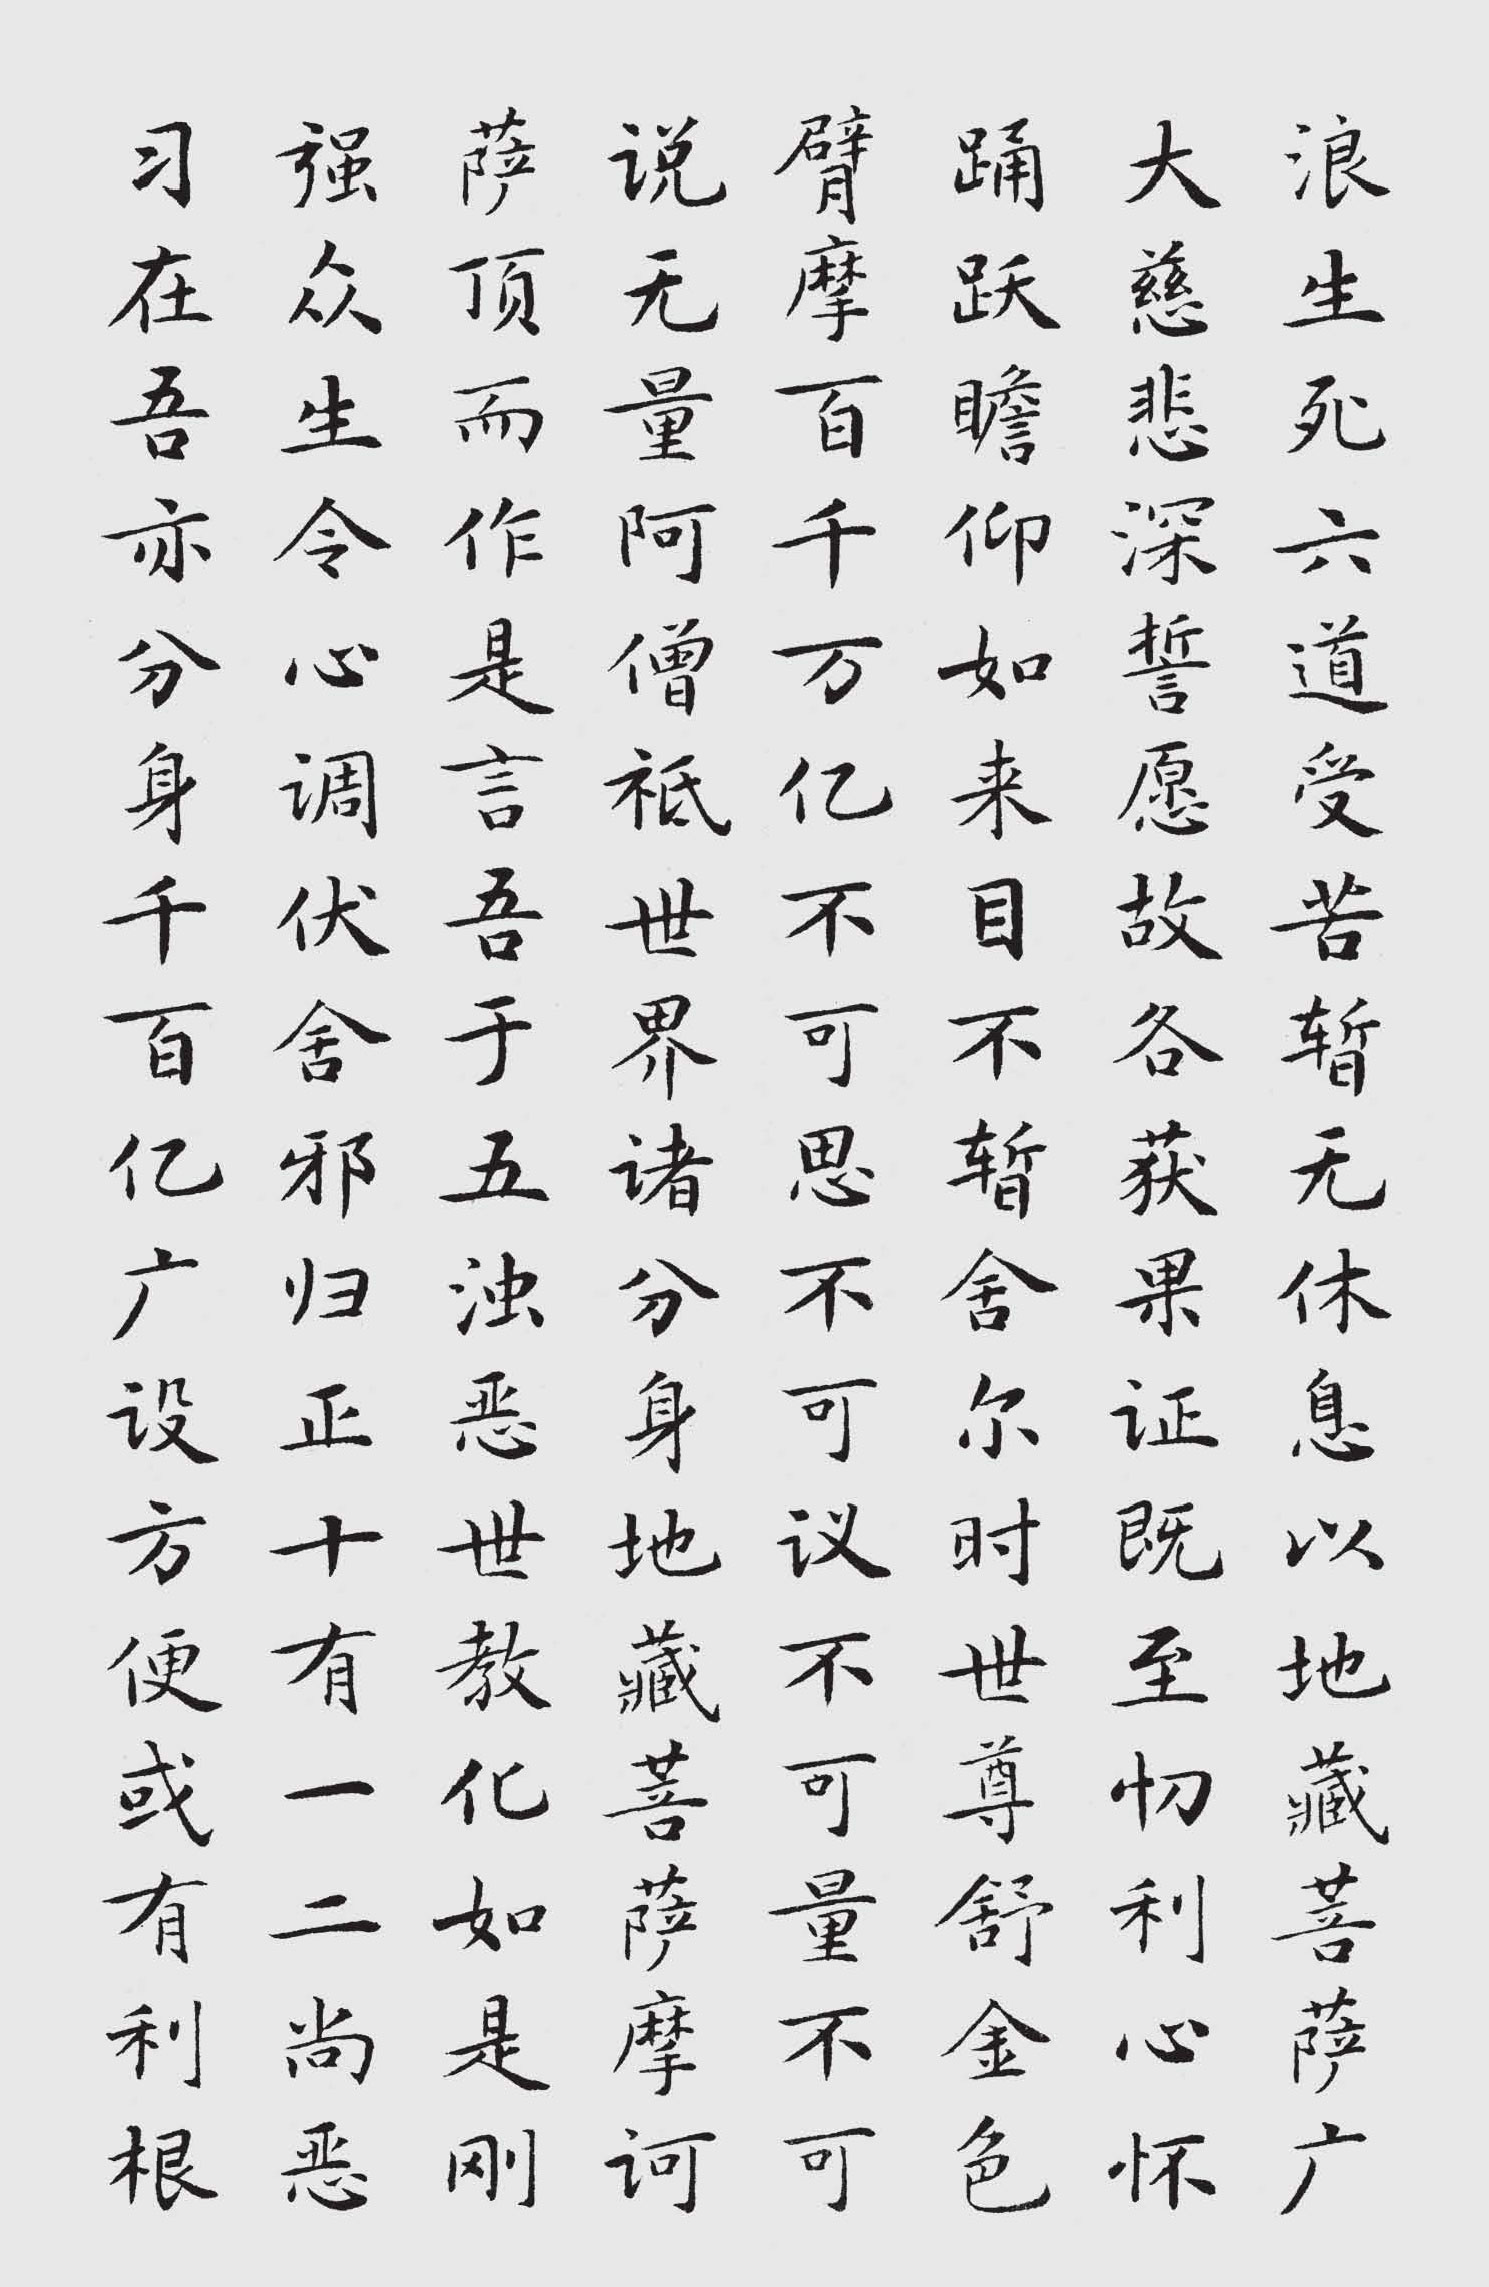 浪生死六道受苦暂无休息以地藏菩萨广
大慈悲深誓愿故各获果证既至忉利心怀
踊跃瞻仰如来目不暂舍尔时世尊舒金色
臂摩百千万亿不可思不可议不可量不可
说无量阿僧祇世界诸分身地藏菩萨摩诃
萨顶而作是言吾于五浊恶世教化如是刚
强众生令心调伏舍邪归正十有一二尚恶
习在吾亦分身千百亿广设方便或有利根